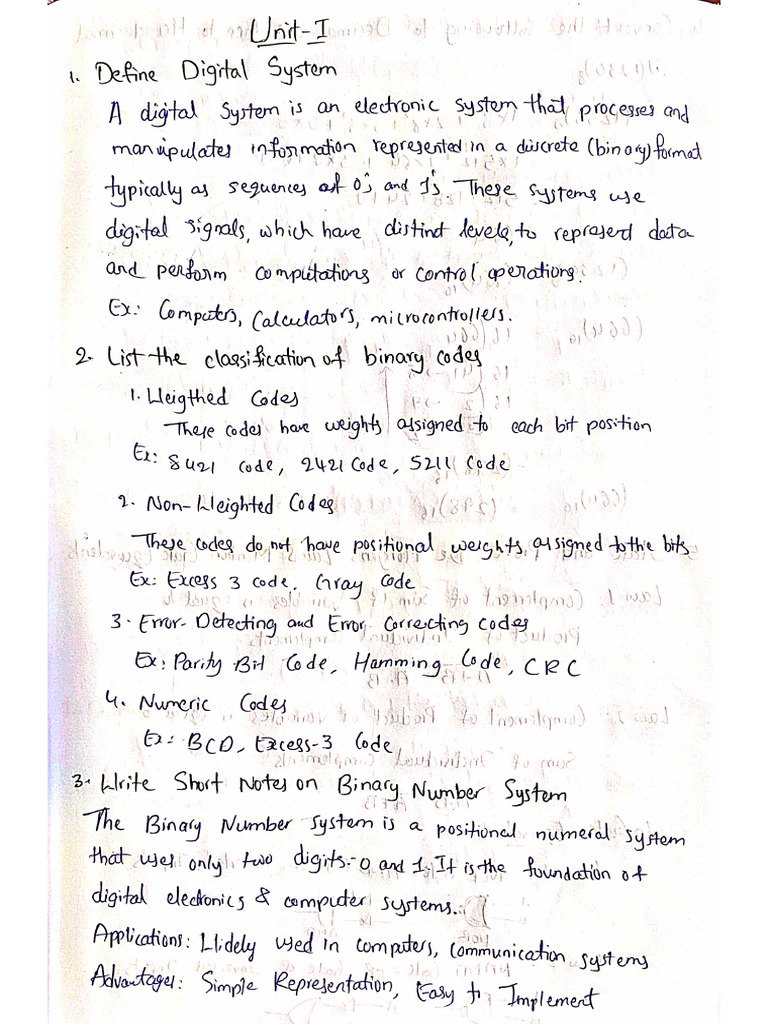 Unit-I
1. Define Digital System
A digital System is an electronic system that processes and
manupulates information represented in a discrete (binary) format
typically as sequences of 0's and 1's. These systems use
digital signals, which have distind levels, to represerd data
and perform computations or control operations.
Ex: Computers, Calculators, microcontrollers.
2. List the classification of binary codes
1. Weigthed Codes
These codes have weights assigned to each bit position
Ex: 8421 code, 2421 Code, 5211 Code
2. Non-Weighted Codes
These codes do not have positional weights assigned to the bits
Ex: Excess 3 code, Gray Code
3. Error-Detecting and Error Correcting codes
Ex: Parity Bit Code, Hamming Code, CRC
4. Numeric Codes
Ex: BCD, Excess-3 Code
3. Write Short Notes on Binary Number System
The Binary Number system is a positional numeral system
that uses only two digits - 0 and 1. It is the foundation of
digital electronics & computer systems.
Applications: Widely used in computers, communication systems
Advantages: Simple Representation, Easy to Implement